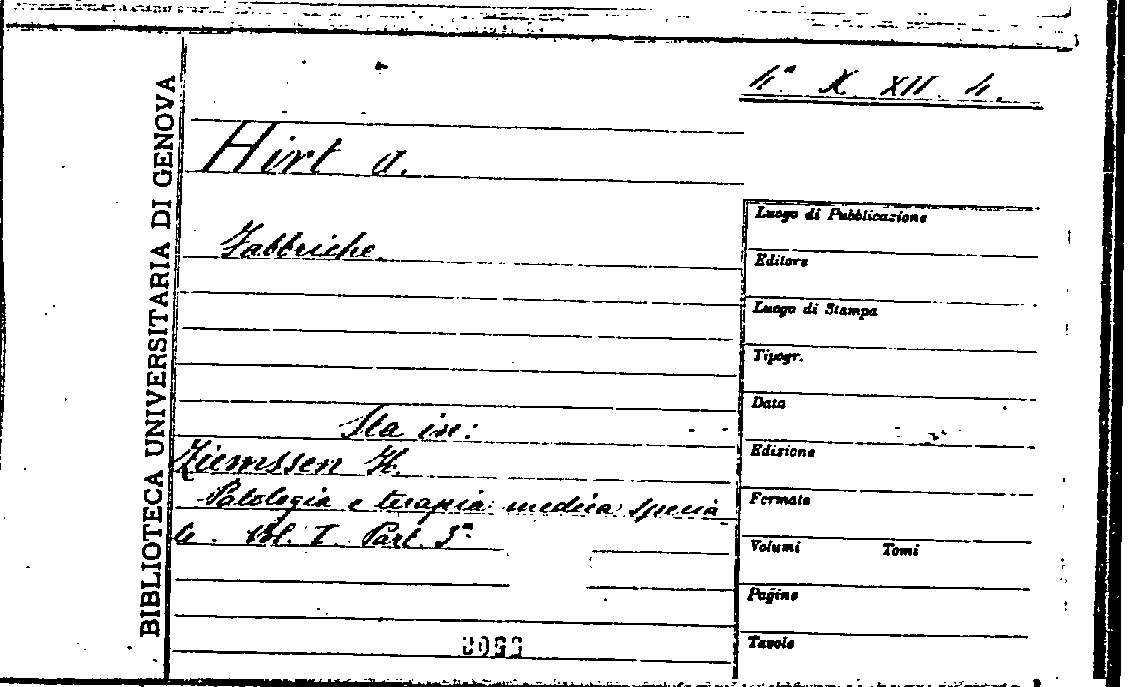 4ª X XII. 4.
BIBLIOTECA UNIVERSITARIA DI GENOVA
Hirt a.
Fabbriche.
Sta in:
Ziemssen H.
Patologia e terapia medica specia
le. Vol. I. Part. 3ª
Luogo di Pubblicazione
Editore
Luogo di Stampa
Tipogr.
Data
Edizione
Formato
Volumi Tomi
Pagine
Tavole